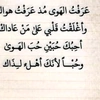 عَرَفْتُ الهَوَى مُذ عَرَفْتُ هواك
وأَغْلَقْتُ قَلْبي عَلَىٰ مَنْ عَاداكْ
أُحِبُّكَ حُبَّيْنِ حُبَّ الهَوىٰ
وحُبّاً لأَنَّكَ أَهْلٌ لِذَاك